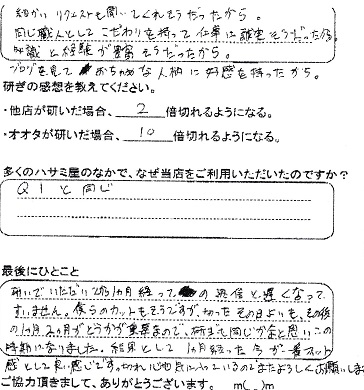 細かいリクエストも聞いてくれそうだったから。
同じ職人としてこだわりを持って仕事に誠実そうだったから
知識と経験が豊富そうだったから。
ブログを見て おちゃめな人柄に好感を持ったから。
研ぎの感想を教えてください。
・他店が研いだ場合、2倍切れるようになる。
・オオタが研いだ場合、10倍切れるようになる。
多くのハサミ屋のなかで、なぜ当店をご利用いただいたのですか？
Q1と同じ
最後にひとこと
研いでいただいてから1カ月経って の返信と遅くなって
すいません。僕らのカットもそうですが、切ったその日よりも、その後
の1カ月2カ月がどうかが重要なので、研ぎも同じかなと思いこの
時期になりました。結果として1カ月経った今が一番ベスト
感として良い感じです。切れ心地気に入っているのでまたよろしくお願いし
ご協力頂きまして、ありがとうございます。 m(_)m